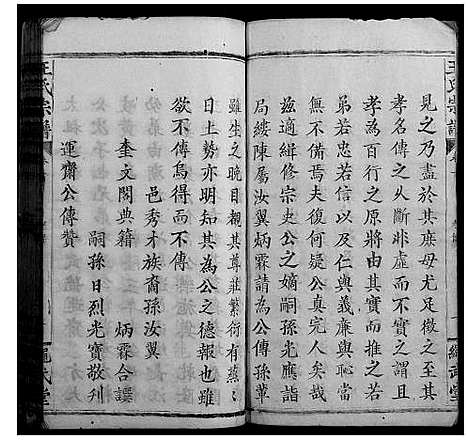 王氏宗譜
見之乃盡於其庶母尤足徵之至
孝名傳之不斷非虛而不實之謂且
孝為百行之原將由其實而推之若
弟若忠若信以及仁與義廉與恥當
無不備焉夫復何疑公真完人矣哉
茲適緝修宗史公之嫡嗣孫光應詣
局縷陳屬汝翼炳霖請為公傳孫輩
雖生之晚目覩其尊莊繁衍有蒸蒸
日上勢亦明知其為公之德報也雖
欲不傳烏得而不傳
邑秀才族裔孫汝翼
奎文閣典籍 炳霖合譔
嗣孫日烈光寶敬刋
運齋公傳贊
王氏宗譜